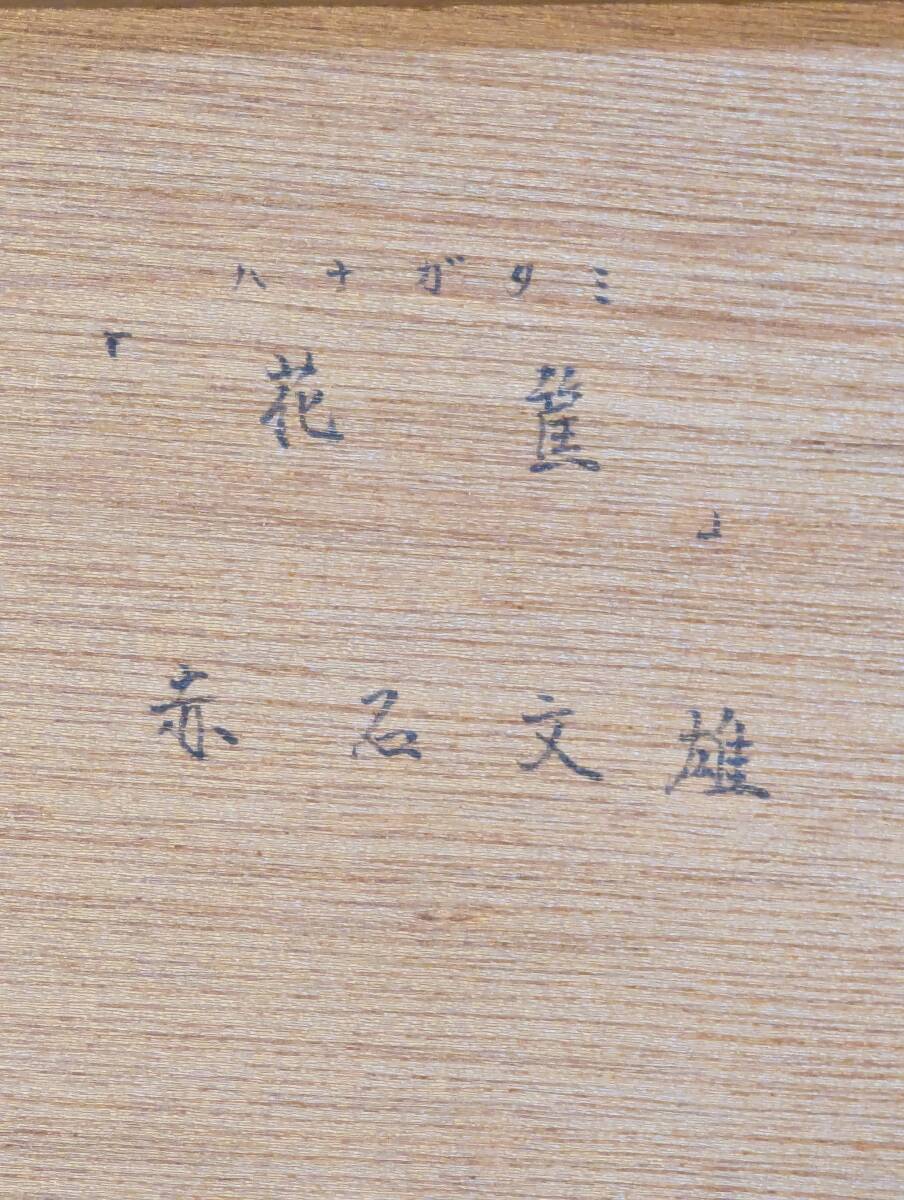 ハナガタミ
「花筐」
赤石文雄